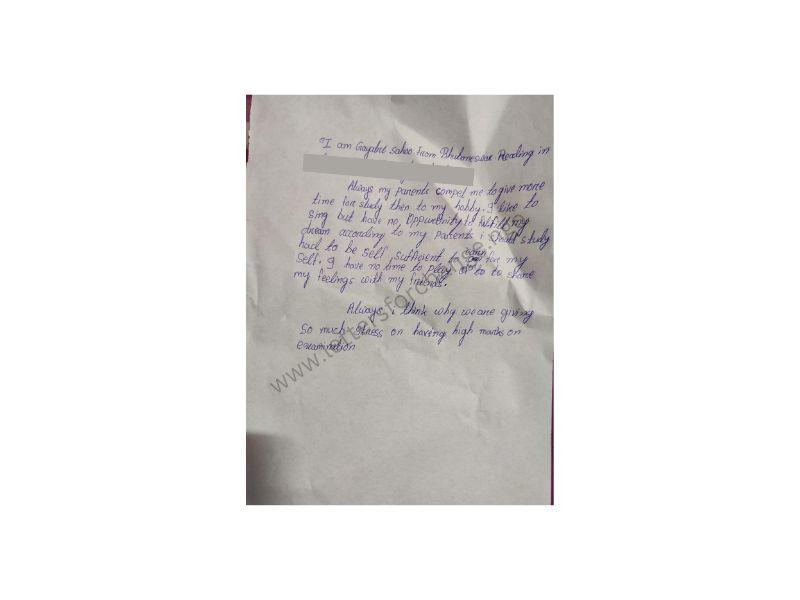 "I am Gayatri Sahoo. From Bhubneswar Reading in
Always my parents compel me to give more
time for study then to my hobby. I like to
sing but have no, Oppurtunity to fulfill my
dream according to my Parents i should study
hard to be self sufficient to earn for my
self. I have no time to play or to to share
my feelings with my friends.
Always i think why we are giving
So much stress on having high marks on
examination
www.lettersforchange.net